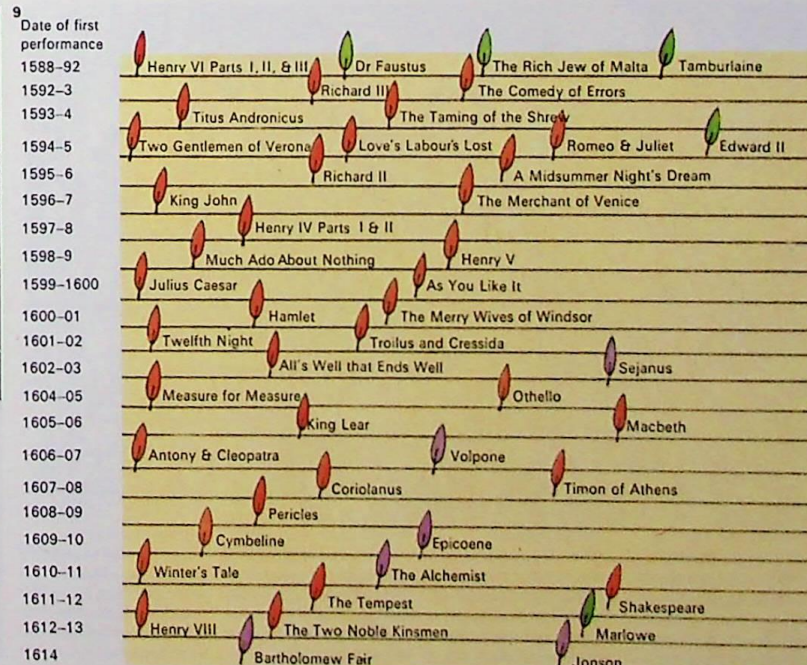 9
Date of first
performance
1588-92 Henry VI Parts I, II, & III Dr Faustus The Rich Jew of Malta Tamburlaine
1592-3 Richard III The Comedy of Errors
1593-4 Titus Andronicus The Taming of the Shrew
1594-5 Two Gentlemen of Verona Love's Labour's Lost Romeo & Juliet Edward II
1595-6 Richard II A Midsummer Night's Dream
1596-7 King John The Merchant of Venice
1597-8 Henry IV Parts I & II
1598-9 Much Ado About Nothing Henry V
1599-1600 Julius Caesar As You Like It
1600-01 Hamlet The Merry Wives of Windsor
1601-02 Twelfth Night Troilus and Cressida
1602-03 All's Well that Ends Well Sejanus
1604-05 Measure for Measure Othello
1605-06 King Lear Macbeth
1606-07 Antony & Cleopatra Volpone
1607-08 Coriolanus Timon of Athens
1608-09 Pericles
1609-10 Cymbeline Epicoene
1610-11 Winter's Tale The Alchemist
1611-12 The Tempest Shakespeare
1612-13 Henry VIII The Two Noble Kinsmen Marlowe
1614 Bartholomew Fair Jonson